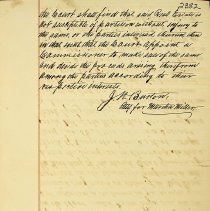 2882
the Court shall find that said Real Estate is
not susceptible of partition without injury to
the same, or the parties interested therein, then
in that event that the Court appoint a
Commissioner to make sale of the same
and divide the proceeds arising therefrom
among the parties according to their
respective interests.
J. H.
Atty for